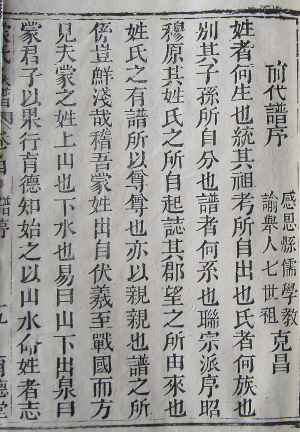 前代譜序
感恩縣儒學教
諭舉人七世祖
克昌
姓者何生也統其祖考所自出也氏者何族也
別其子孫所自分也譜者何系也聯宗派序昭
穆原其姓氏之所自起誌其郡望之所由來也
姓氏之有譜所以尊尊也亦以親親也譜之所
係豈鮮淺哉稽吾蒙姓出自伏羲至戰國而方
見夫蒙之姓上山也下水也易曰山下出泉曰
蒙君子以果行育德知始之以山水命姓者志